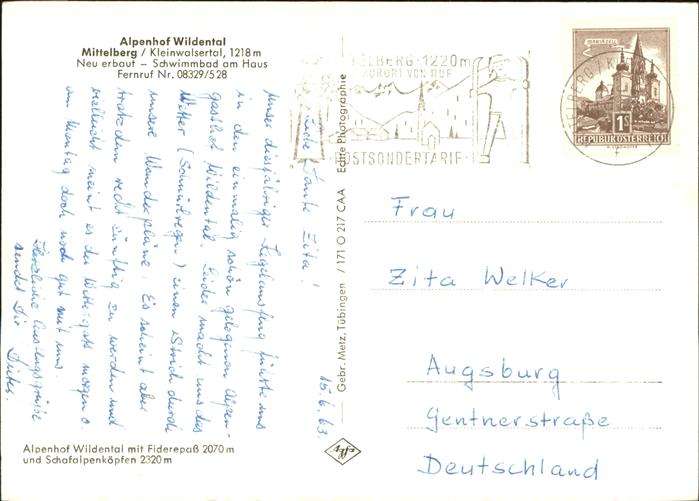 Alpenhof Wildental
Mittelberg / Kleinwalsertal, 1218 m
Neu erbaut – Schwimmbad am Haus
Fernruf Nr. 08329/5 28
15.6.63
Liebe Tante Zita!
Unser diesjähriger Kegelausflug führte uns
in den einmalig schön gelegenen Alpen-
gasthof Wildental. Leider macht uns das
Wetter (Schnürlregen) einen Strich durch
unsere Wanderpläne. Es scheint aber
trotzdem recht zünftig zu werden und
vielleicht meint es der Wettergott morgen o
am Montag doch noch gut mit uns.
Herzliche Grüße
sendet Dir Dieter.
Alpenhof Wildental mit Fiderepaß 2070 m
und Schafalpenköpfen 2320 m
Gebr. Metz, Tübingen / 171 O 217 CAA Echte Photographie
Agfa
ELBERG·1220m
KURORT VON RUF
POSTSONDERTARIF
MARIAZELL
1S
REPUBLIK ÖSTERREICH
Frau
Zita Welker
Augsburg
Gentnerstraße
Deutschland